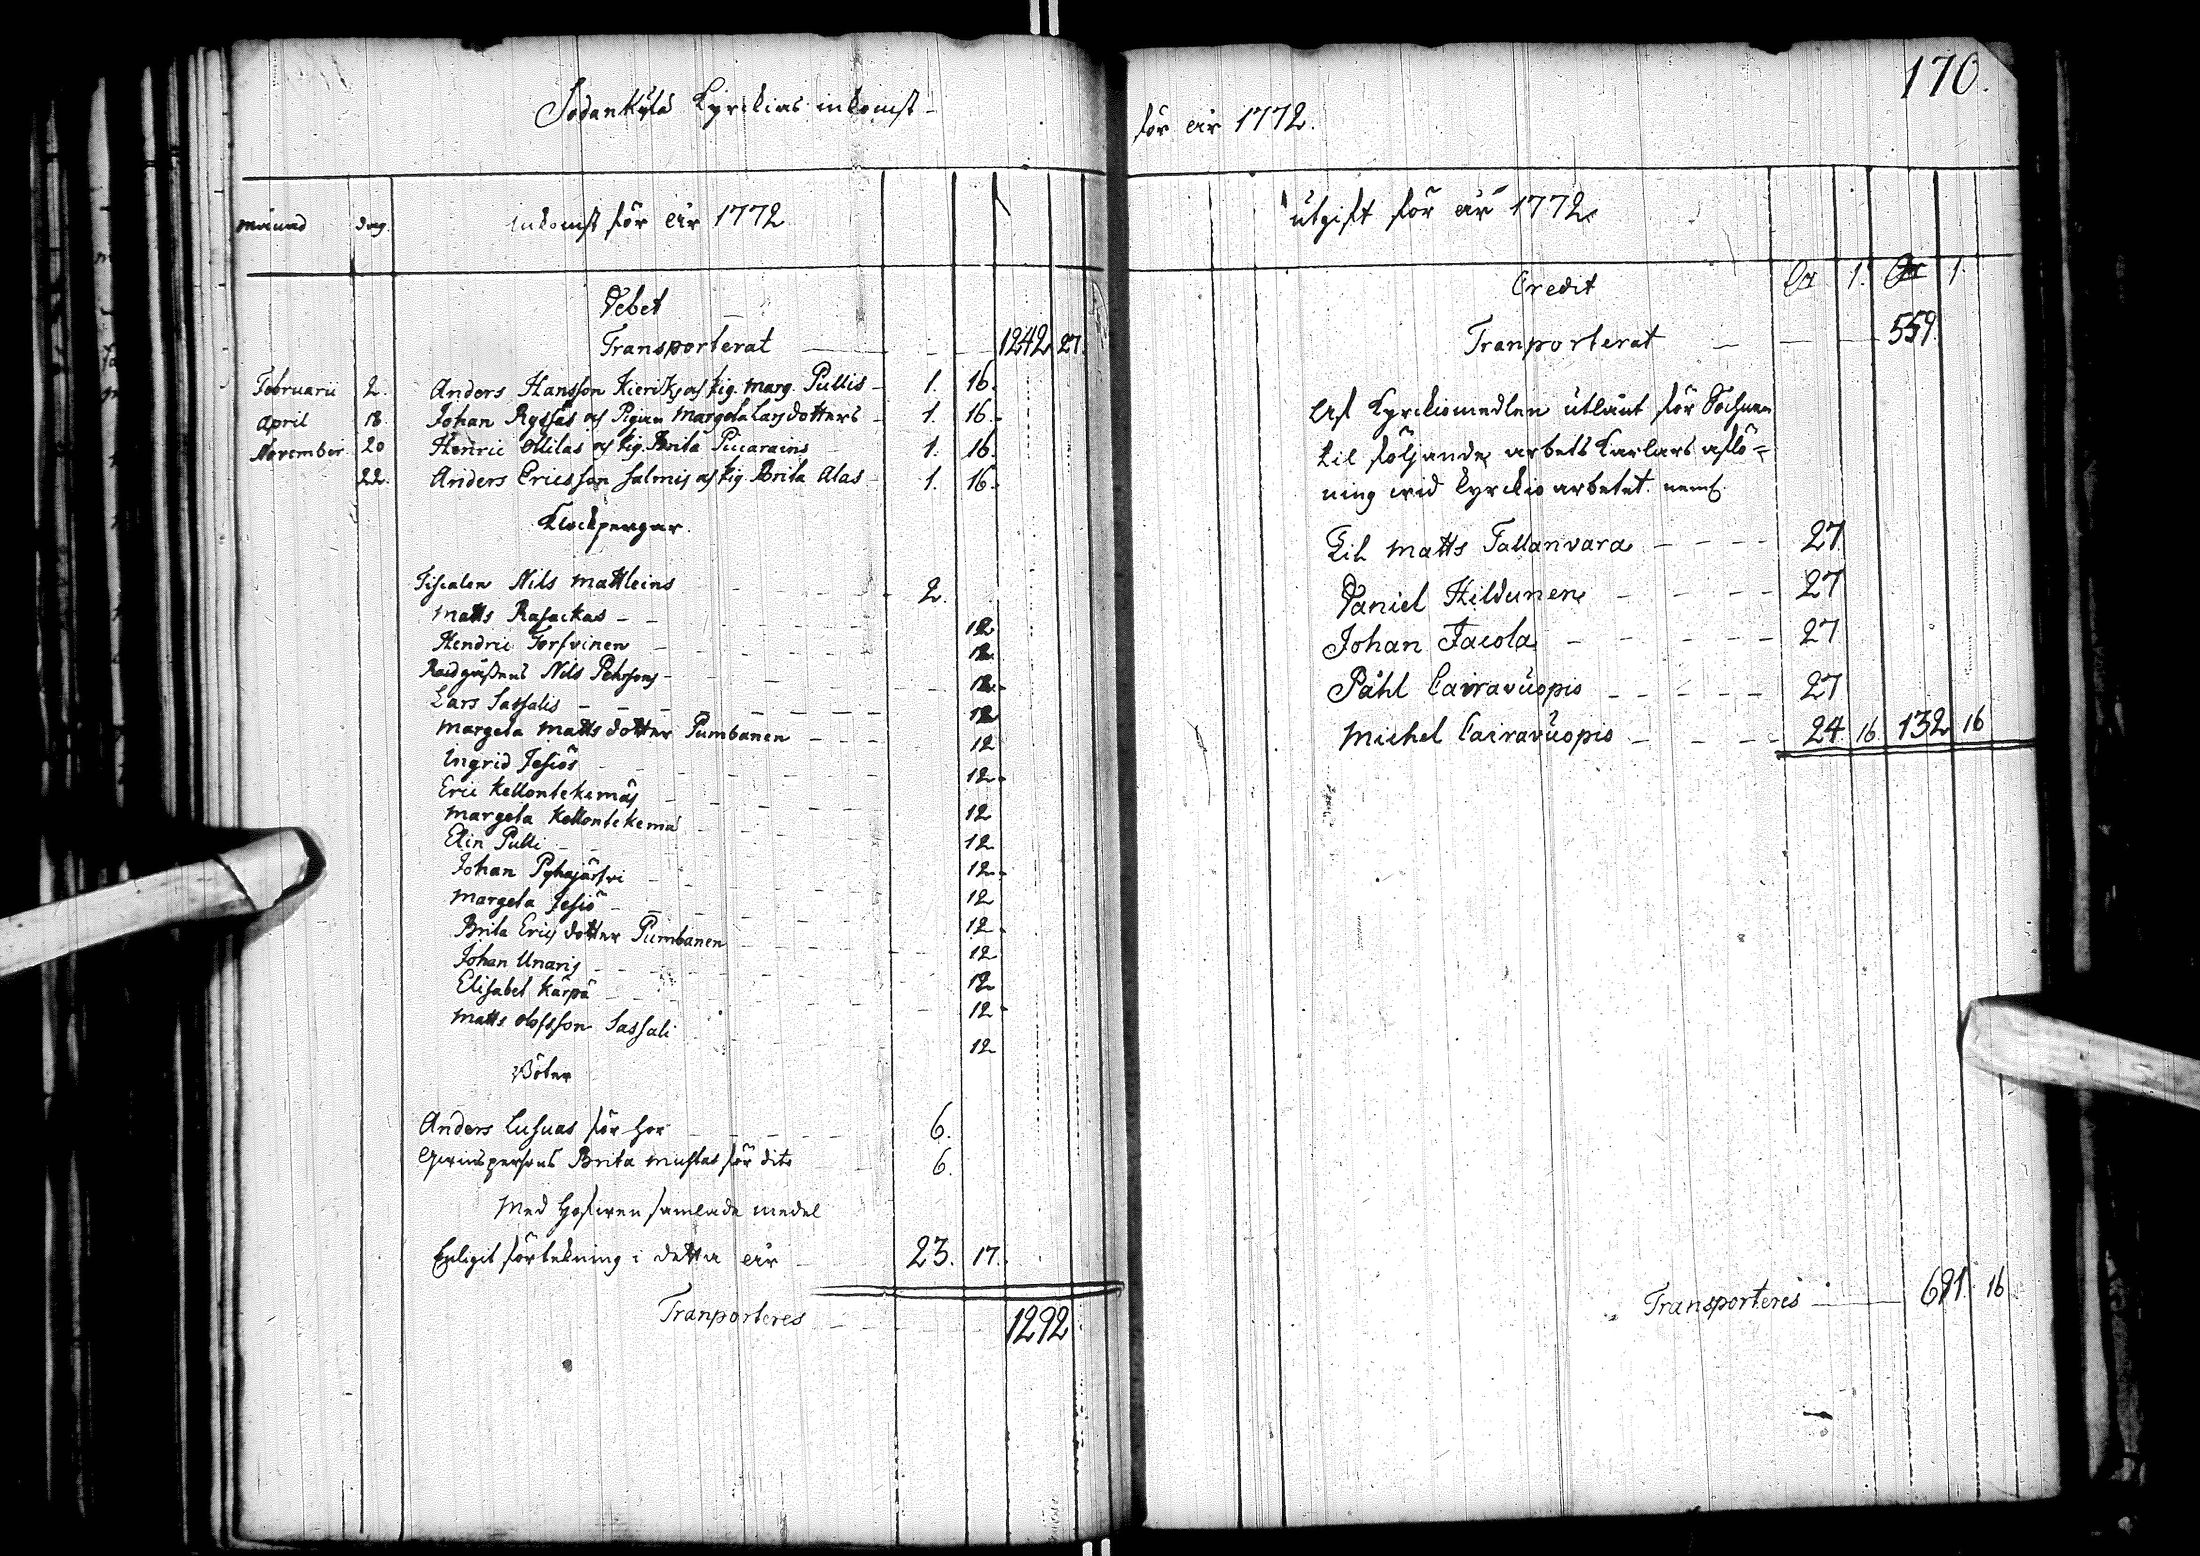 Sodankylä Kyrckias inkomst
månad dag. inkomst för år 1772
Debet
Transporterat 1242 27.
Februarii 2. Anders Hansson och Pig. Marg. Pullis 1. 16.
April 18. Johan och Pigan Margeta Larsdotters 1. 16.
November 20 Henric Ollilas och Pig. Brita 1. 16.
22. Anders Ericsson Salmis och Pig. Brita Alas 1. 16.
Klockpengar.
Fiscalen Nils Mattleins 2.
Matts Rasackas 12
Hendric Torfvinen 12
Nils Pehrsons 12
Lars Sassalis 12
Margeta Matts dotter Pumbanen 12
Ingrid Jesiös 12
Eric Kellontekemäs 12
Margeta Kellontekemä 12
Elin Pulli 12
Johan Pyhäjärfvi 12
Margeta Jesiö 12
Brita Erics dotter Pumbanen 12
Johan Unaris 12
Elisabet Kärpä 12
Matts Olofsson Sassali 12
Böter
Anders Lusuas för hor 6.
Qwinspersons Brita Mustas för dito 6.
Med Hofwen samlade medel
Enligit förtekning i detta år 23. 17.
Tranporteres 1292
170.
för år 1772.
utgift för år 1772
Credit
Tranporterat 559.
Af Kyrckiomedlen utlånt för Sochnen
til följande arbets Karlars aflö=
ning wid Kyrckio arbetet. neml.
Til Matts Tallanvara 27
Daniel Hildunen 27
Johan Jacola 27
Påhl Cairavuopio 27
Michel Cairavuopio 24 16. 132 16
Transporteres 691. 16